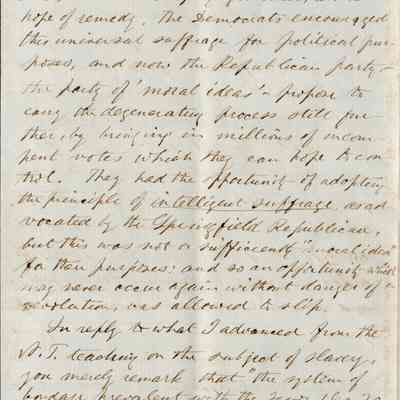 hope of remedy. The Democrats encouraged
this universal suffrage for political pur-
poses, and now the Republican party -
the party of 'moral ideas' - propose to
carry the degenerating process still fur-
ther, by bringing in millions of incom-
pent votes which they can hope to con-
trol. They had the opportunity of adopting
the principle of intelligent suffrage, as ad-
vocated by the Springfield Republican,
but this was not a sufficiently "moral idea"
for their purposes; and so an opportunity which
may never occur again without danger of a
revolution, was allowed to slip.
In reply to what I advanced from the
N. T. teaching on the subject of slavery,
you merely remark that "the system of
bondage prevalent with the Jews